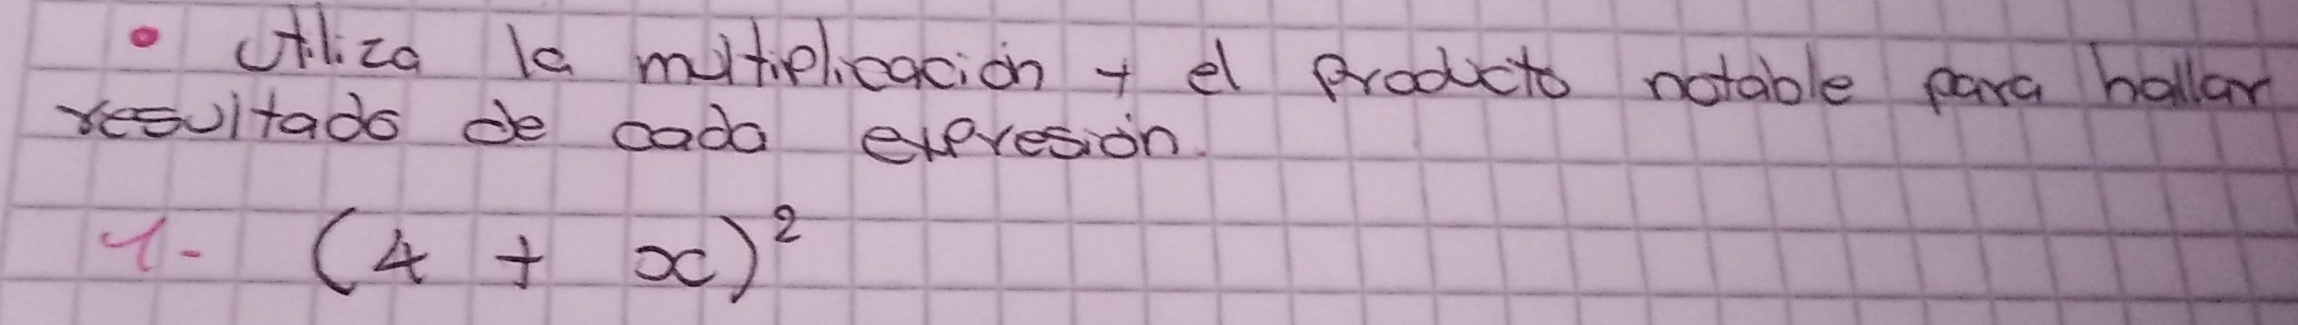 • Utiliza la multiplicación y el producto notable para hallar
resultado de cada expresión.
1- (4 + x)²